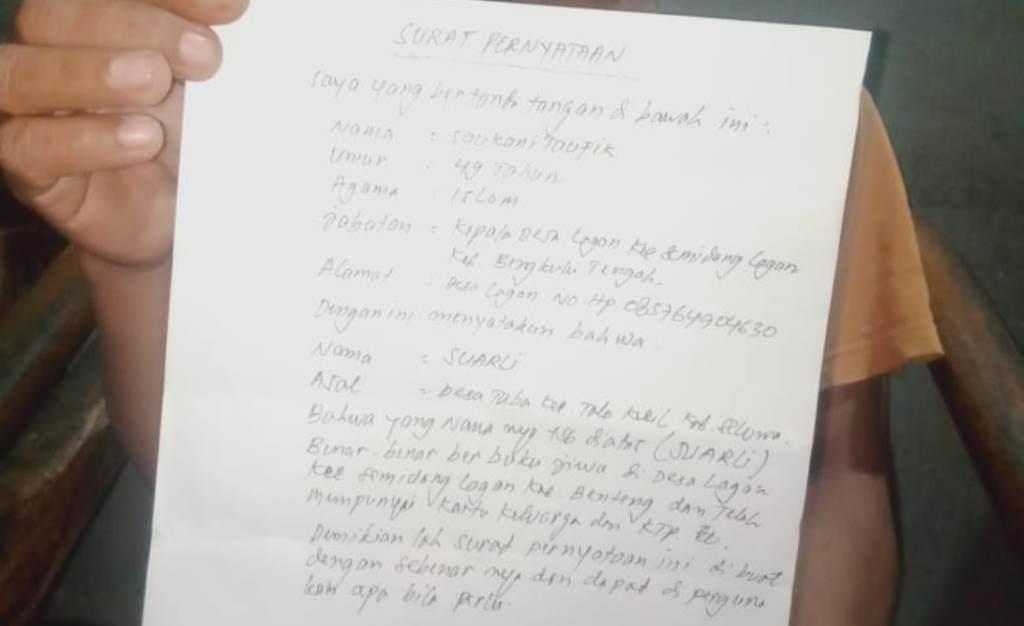 SURAT PERNYATAAN
Saya yang bertanda tangan di bawah ini :
Nama : Saukani Taufik
Umur : 49 Tahun
Agama : Islam
Jabatan : Kepala Desa Lagan Kec Semidang Lagan
Kab. Bengkulu Tengah.
Alamat : Desa Lagan No. Hp. 085764904630
Dengan ini menyatakan bahwa
Nama : SUARLi
Asal : Desa Taba Kec. Talo Kecil Kab. Seluma.
Bahwa yang Nama nya tsb di atas (SUARLi)
Benar-benar ber buku jiwa di Desa Lagan
Kec Semidang Lagan Kab. Benteng dan Telah
mempunyai Kartu Keluarga dan KTP
Demikian lah surat pernyataan ini di buat
dengan sebenar nya dan dapat di perguna
kan apa bila perlu.